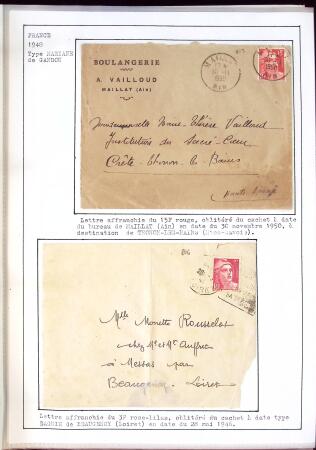 FRANCE
1948
Type MARIANE
de GANDON
BOULANGERIE
A. VAILLOUD
MAILLAT (Ain)
MAILLAT
1950
AIN
Mademoiselle Marie-Thérèse Vailloud
Institution du Sacré-Cœur
Crête-Thonon-les-Bains
Haute-Savoie
Lettre affranchie du 15F rouge, oblitéré du cachet à date
du bureau de MAILLAT (Ain) en date du 30 novembre 1950, à
destination de THONON-LES-BAINS (Hte-Savoie).
Mlle Monette Rousselot
chez Mr et Me Auffret
à Messas par
Beaugency. Loiret
Lettre affranchie du 3F rose-lilas, oblitéré du cachet à date type
DAGUIN de BEAUGENCY (Loiret) en date du 28 mai 1948.